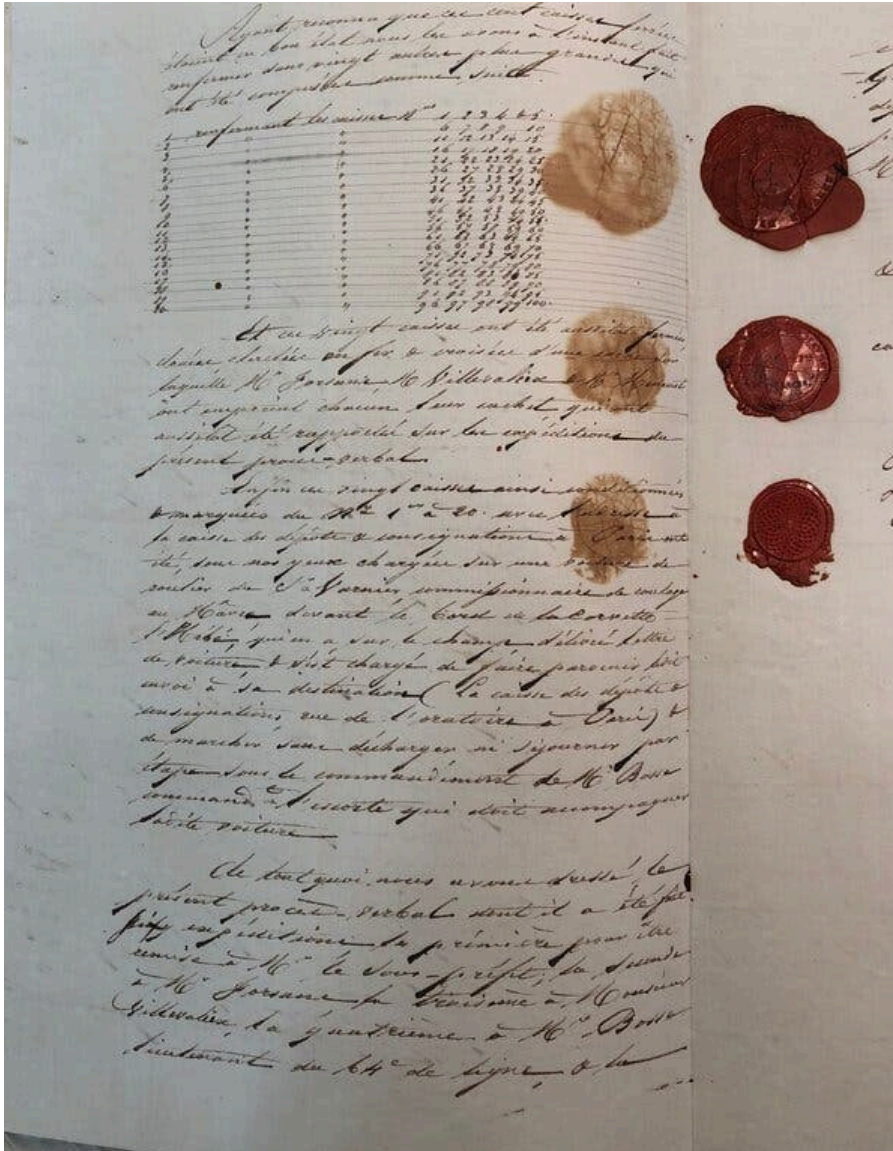 Ayant reconnu que ces cent caisses ferrées
étaient en bon état nous les avons à l'instant fait
renfermer dans vingt autres plus grandes qui
ont été composées comme suit.
1 renfermant les caisses Nos 1 2 3 4 & 5.
2 " " 6 7 8 9 10
3 " " 11 12 13 14 15
" " 16 17 18 19 20
" " 21 22 23 24 25
" " 26 27 28 29 30
" " 31 32 33 34 35
" " 36 37 38 39 40
" " 41 42 43 44 45
" " 46 47 48 49 50
" " 51 52 53 54 55
" " 56 57 58 59 60
" " 61 62 63 64 65
" " 66 67 68 69 70
" " 71 72 73 74 75
" " 76 77 78 79 80
" " 81 82 83 84 85
" " 86 87 88 89 90
" " 91 92 93 94 95
20 " " 96 97 98 99 100.
Et ces vingt caisses ont été aussitôt fermées
clouées cerclées en fer & croisées d'une corde sur
laquelle Mr Jorsanne Mr Villevalix & Mr
ont empreint chacun leur cachet qui ont
aussitôt été rapportés sur les expéditions du
présent procès-verbal.
Enfin ces vingt caisses ainsi conditionnées
& marquées du No 1er à 20. avec l'adresse à
la caisse des dépôts & consignations à Paris ont
été, sous nos yeux chargées sur une voiture de
roulier du Sr Varnier commissionnaire de roulage
au Hâvre devant le bord de la Corvette
l'Hébé, qui en a sur le champ délivré lettre
de voiture & s'est chargé de faire parvenir
envoi à sa destination (la caisse des dépôts &
consignations, rue de l'oratoire à Paris) &
de marcher sans décharger ni séjourner par
étape sous le commandement de Mr Bosse
commandt l'escorte qui doit accompagner
ladite voiture
De tout quoi nous avons dressé le
présent procès-verbal dont il a été fait
expéditions la première pour être
remise à Mr le Sous-préfet, la seconde
à Mr Jorsanne la troisième à Monsieur
Villevalix, la quatrième à Mr Bosse
lieutenant du 64e de ligne, & la